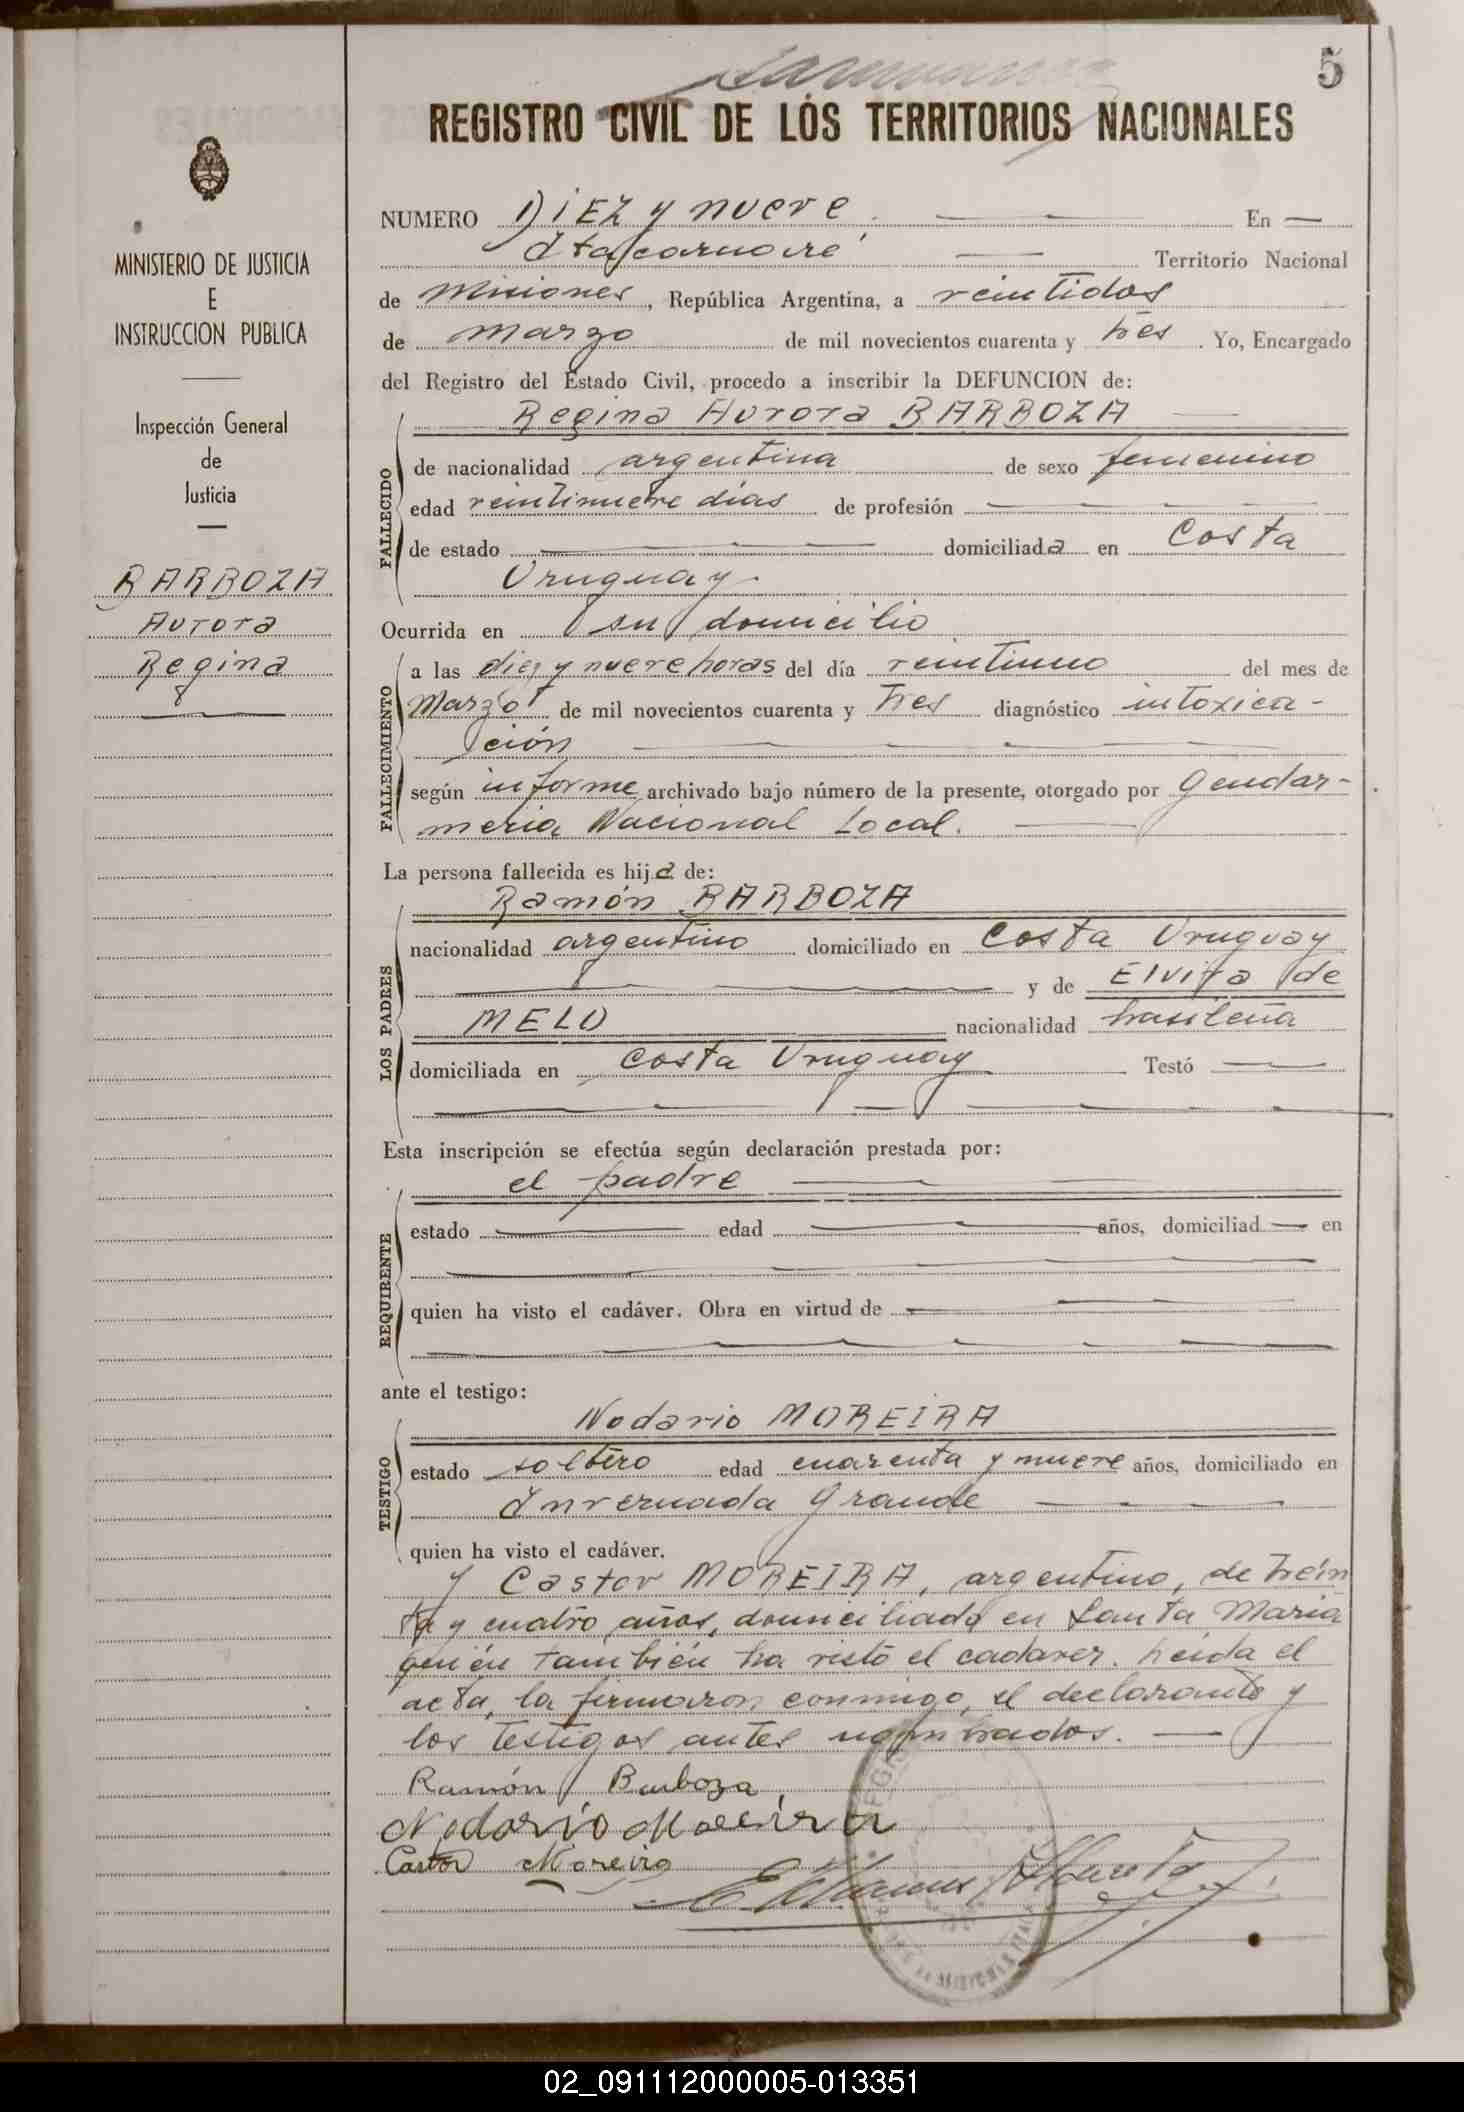 5
REGISTRO CIVIL DE LOS TERRITORIOS NACIONALES
MINISTERIO DE JUSTICIA
E
INSTRUCCION PUBLICA
Inspección General
de
Justicia
BARBOZA
Aurora
Regina
NUMERO Diez y nueve. En
Itacaruaré Territorio Nacional
de Misiones, República Argentina, a veintidos
de marzo de mil novecientos cuarenta y tres. Yo, Encargado
del Registro del Estado Civil, procedo a inscribir la DEFUNCION de:
Regina Aurora BARBOZA
FALLECIDO
de nacionalidad argentina de sexo femenino
edad veintinueve dias de profesión
de estado domiciliada en Costa
Uruguay.
Ocurrida en su domicilio
FALLECIMIENTO
a las diez y nueve horas del día veintiuno del mes de
Marzo de mil novecientos cuarenta y tres diagnóstico intoxica-
ción
según informe archivado bajo número de la presente, otorgado por Gendar-
meria Nacional Local.
La persona fallecida es hija de:
Ramón BARBOZA
LOS PADRES
nacionalidad argentino domiciliado en Costa Uruguay
y de Elvira de
MELO nacionalidad brasileña
domiciliada en Costa Uruguay Testó
Esta inscripción se efectúa según declaración prestada por:
el padre
REQUIRENTE
estado edad años, domiciliad en
quien ha visto el cadáver. Obra en virtud de
ante el testigo:
Nodario MOREIRA
TESTIGO
estado soltero edad cuarenta y nueve años, domiciliado en
Invernada Grande
quien ha visto el cadáver.
y Castor MOREIRA, argentino, de trein
ta y cuatro años, domiciliado en Santa Maria
quién también ha visto el cadaver. Leida el
acta, la firmaron conmigo, el declarante y
los testigos antes nombrados.
Ramón Barboza
Nodario Moreira
Castor Moreira
02_091112000005-013351